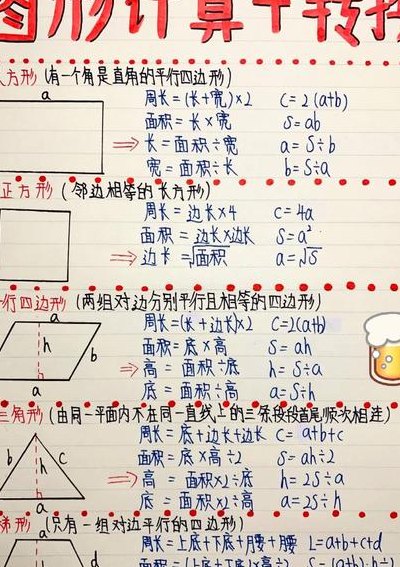 图形计算十转换
长方形 (有一个角是直角的平行四边形)
a
周长=(长+宽)×2 C=2(a+b)
面积=长×宽 S=ab
⇒ 长=面积÷宽 a=S÷b
宽=面积÷长 b=S÷a
正方形 (邻边相等的长方形)
周长=边长×4 C=4a
面积=边长×边长 S=a²
⇒ 边长=√面积 a=√S
行四边形 (两组对边分别平行且相等的四边形)
a
周长=(长+边长)×2 C=2(a+b)
h b
面积=底×高 S=ah
⇒ 高=面积÷底 h=S÷a
a
底=面积÷高 a=S÷h
三角形 (由同一平面内不在同一直线上的三条段段首尾顺次相连)
周长=底+边长+边长 C=a+b+c
b h c
面积=底×高÷2 S=ah÷2
⇒ 高=面积×2÷底 h=2S÷a
a
底=面积×2÷高 a=2S÷h
梯形 (只有一组对边平行的四边形)
a
周长=上底+下底+月腰+月腰 L=a+b+c+d
d
面积=(上底+下底)×高÷2